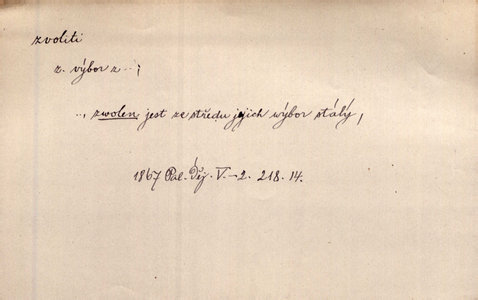 zvoliti
z. výbor z ...;
.., zwolen jest ze středu jejich wýbor stálý,
1867 Pal. Děj. V.-2. 218. 14.